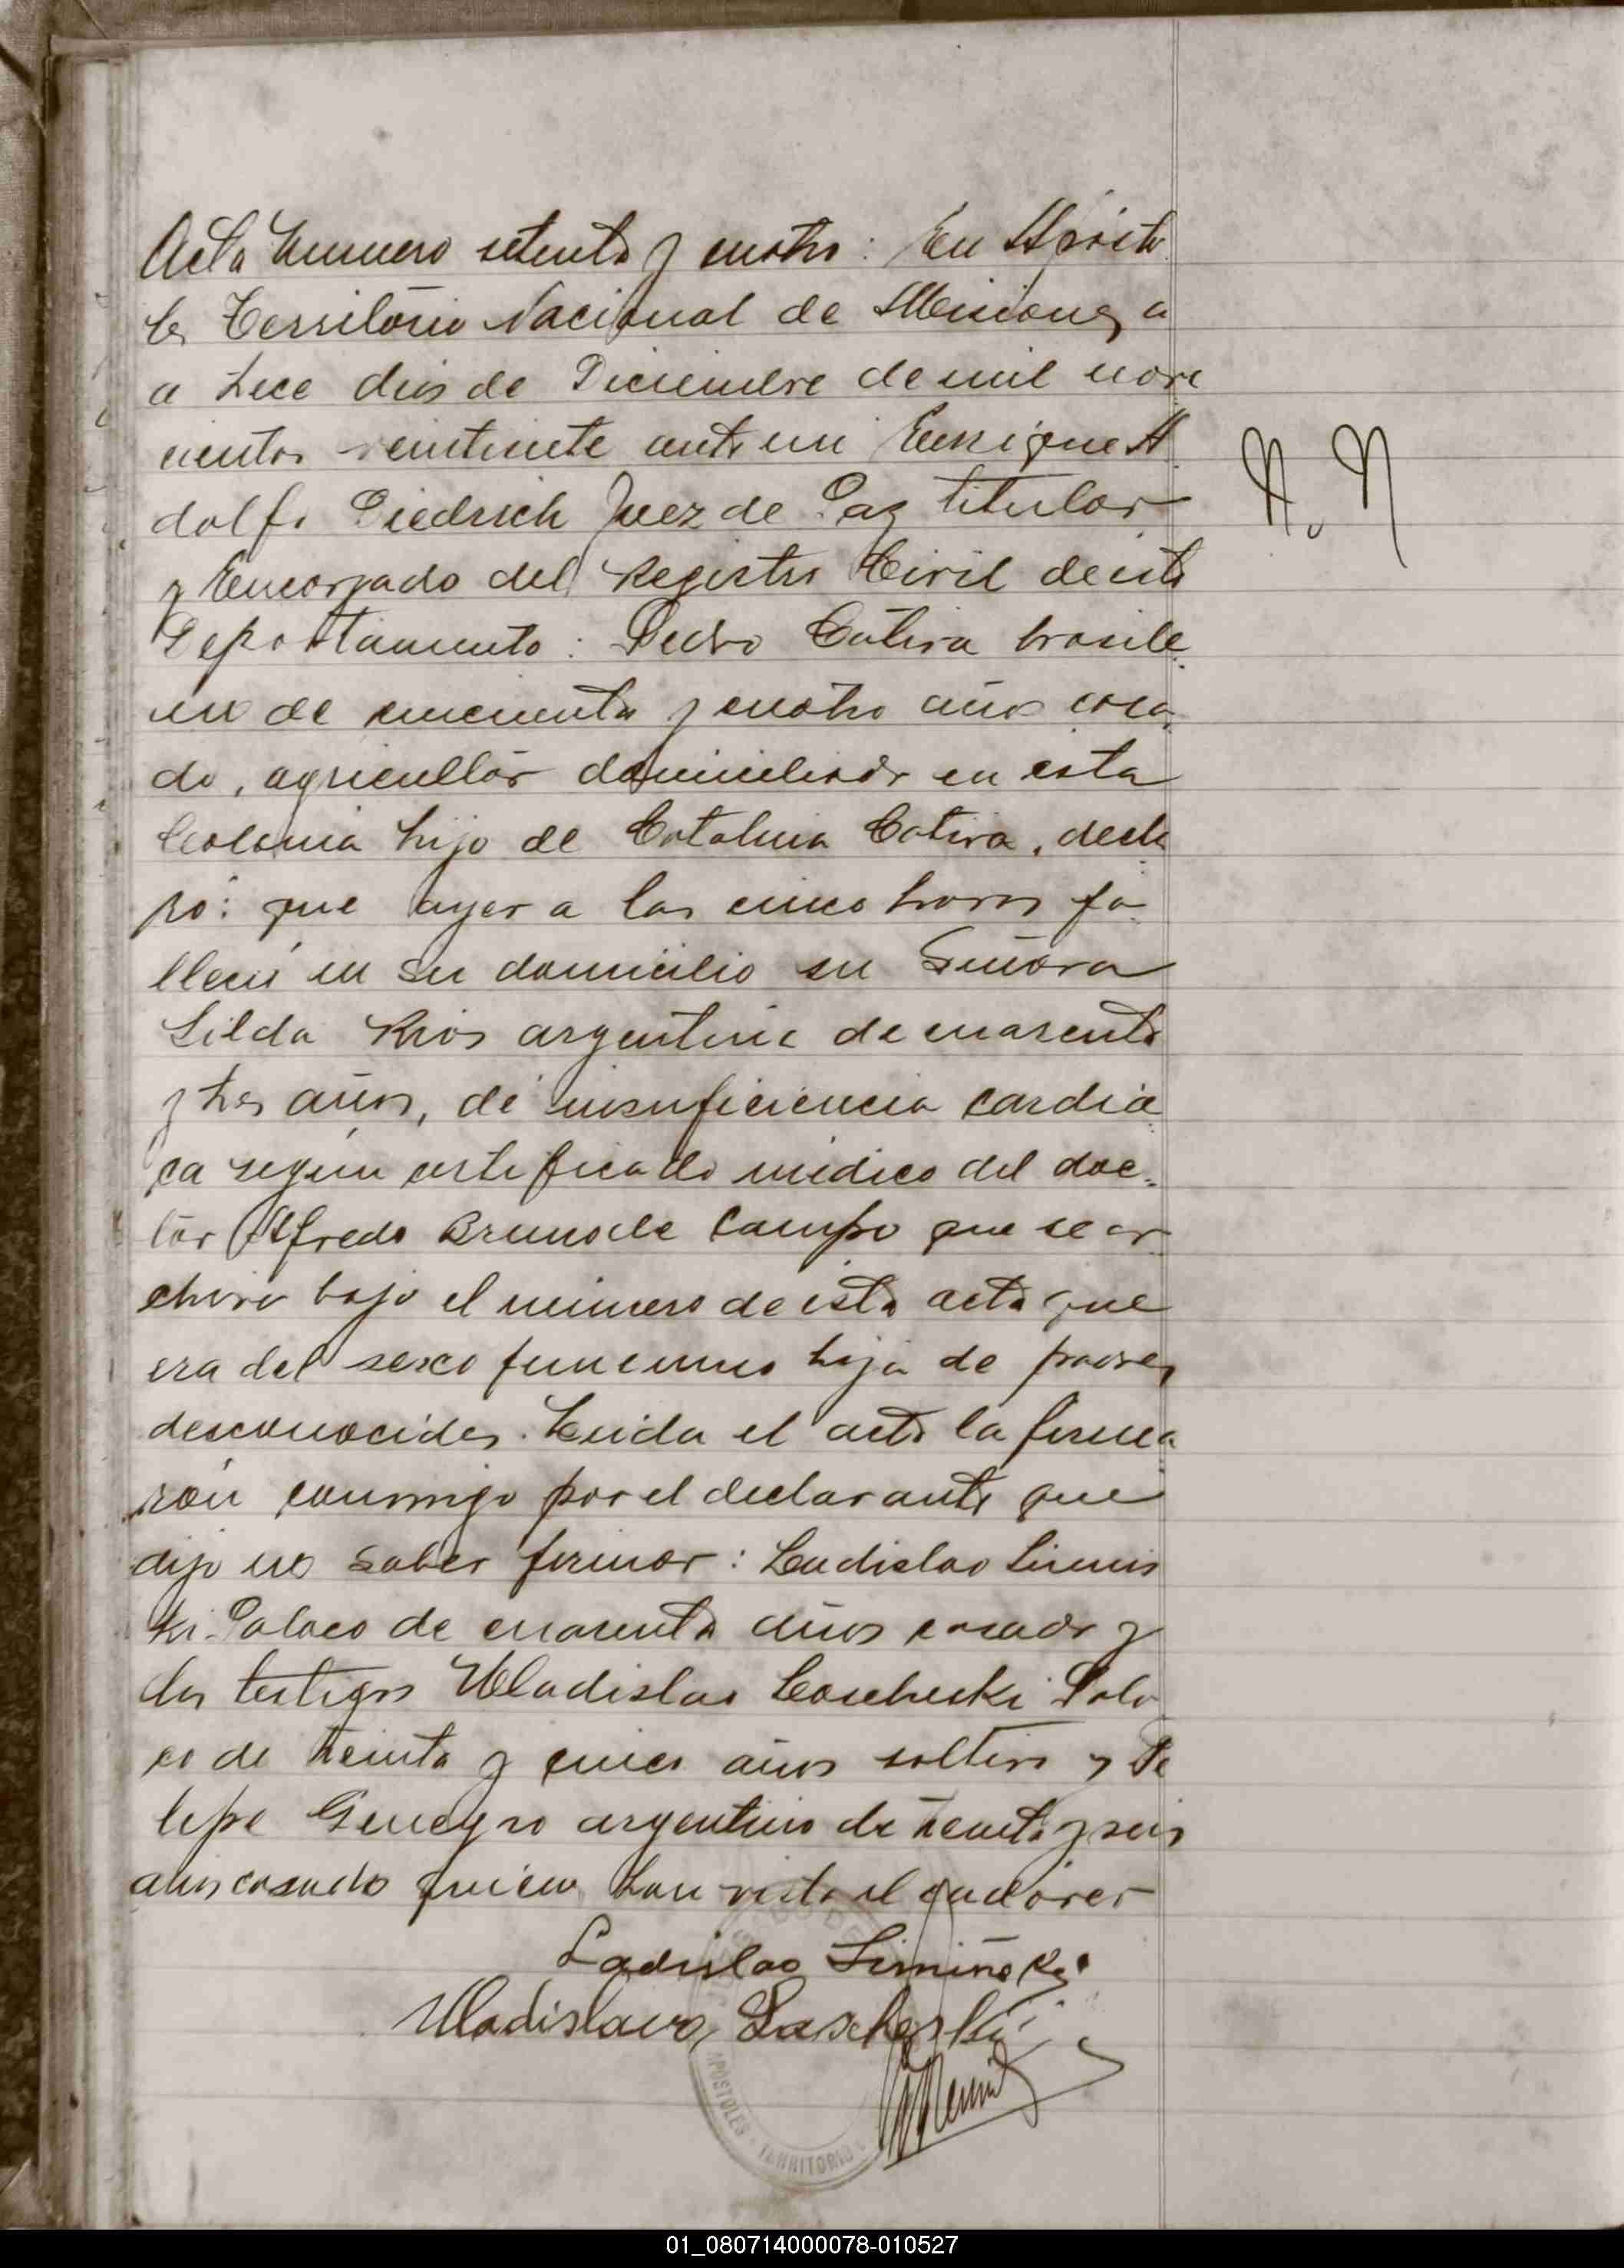 Acta Numero setenta y cuatro: En Aposto
les Territorio Nacional de Misiones, a
a trece dias de Diciembre de mil nove
cientos veintisiete ante mi Enrique A
dolfo Diedrich Juez de Paz titular
y Encargado del Registro Civil de este
Departamento: Pedro Cativa brasile
no de cincuenta y cuatro años casa
do, agricultor domiciliado en esta
Colonia hijo de Catalina Cativa, decla
ró: que ayer a las cinco horas fa
lleció en su domicilio su Señora
Rios argentina de cuarenta
y tres años, de insuficiencia cardia
ca según certificado médico del doc
tor Alfredo Bruno de Campo que se ar
chiva bajo el número de esta acta que
era del sexo femenino hija de padres
desconocidos. Leida el acta la firma
rón conmigo por el declarante que
dijo no saber firmar: Ladislao Simins
ki Polaco de cuarenta años casado y
los testigos Wladislao Pola
co de treinta y cinco años soltero y Fe
lipe argentino de treinta y seis
años casado quienes han visto el cadáver
Ladislao
Wladislavo
APOSTOLES - TERRITORIO
01_080714000078-010527